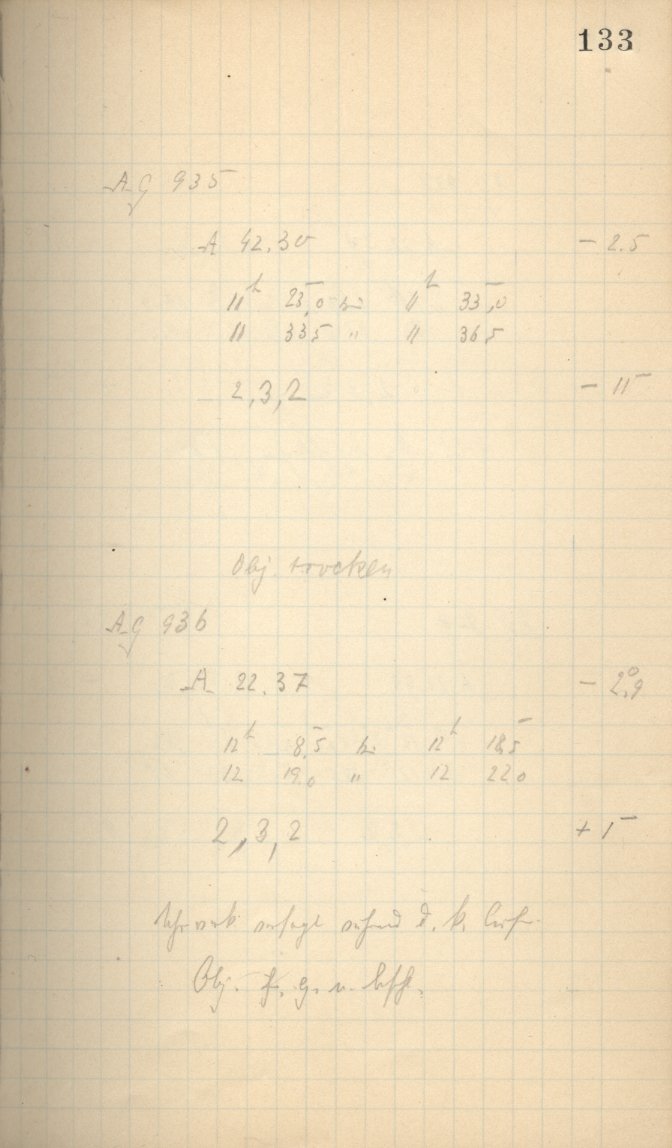 133
AG 935
A 42.30 - 2.5
11h 25,0 bis 11h 33,0
11 33 5 " 11 36 5
2,3,2 - 11
Obj. trocken
AG 936
A 22.37 - 2°.9
12h 8,5 bis 12h 18,5
12 19 0 " 12 22 0
2,3,2 + 1
Uhrwerk versagt während d. k.
Obj. g. n. bschl.